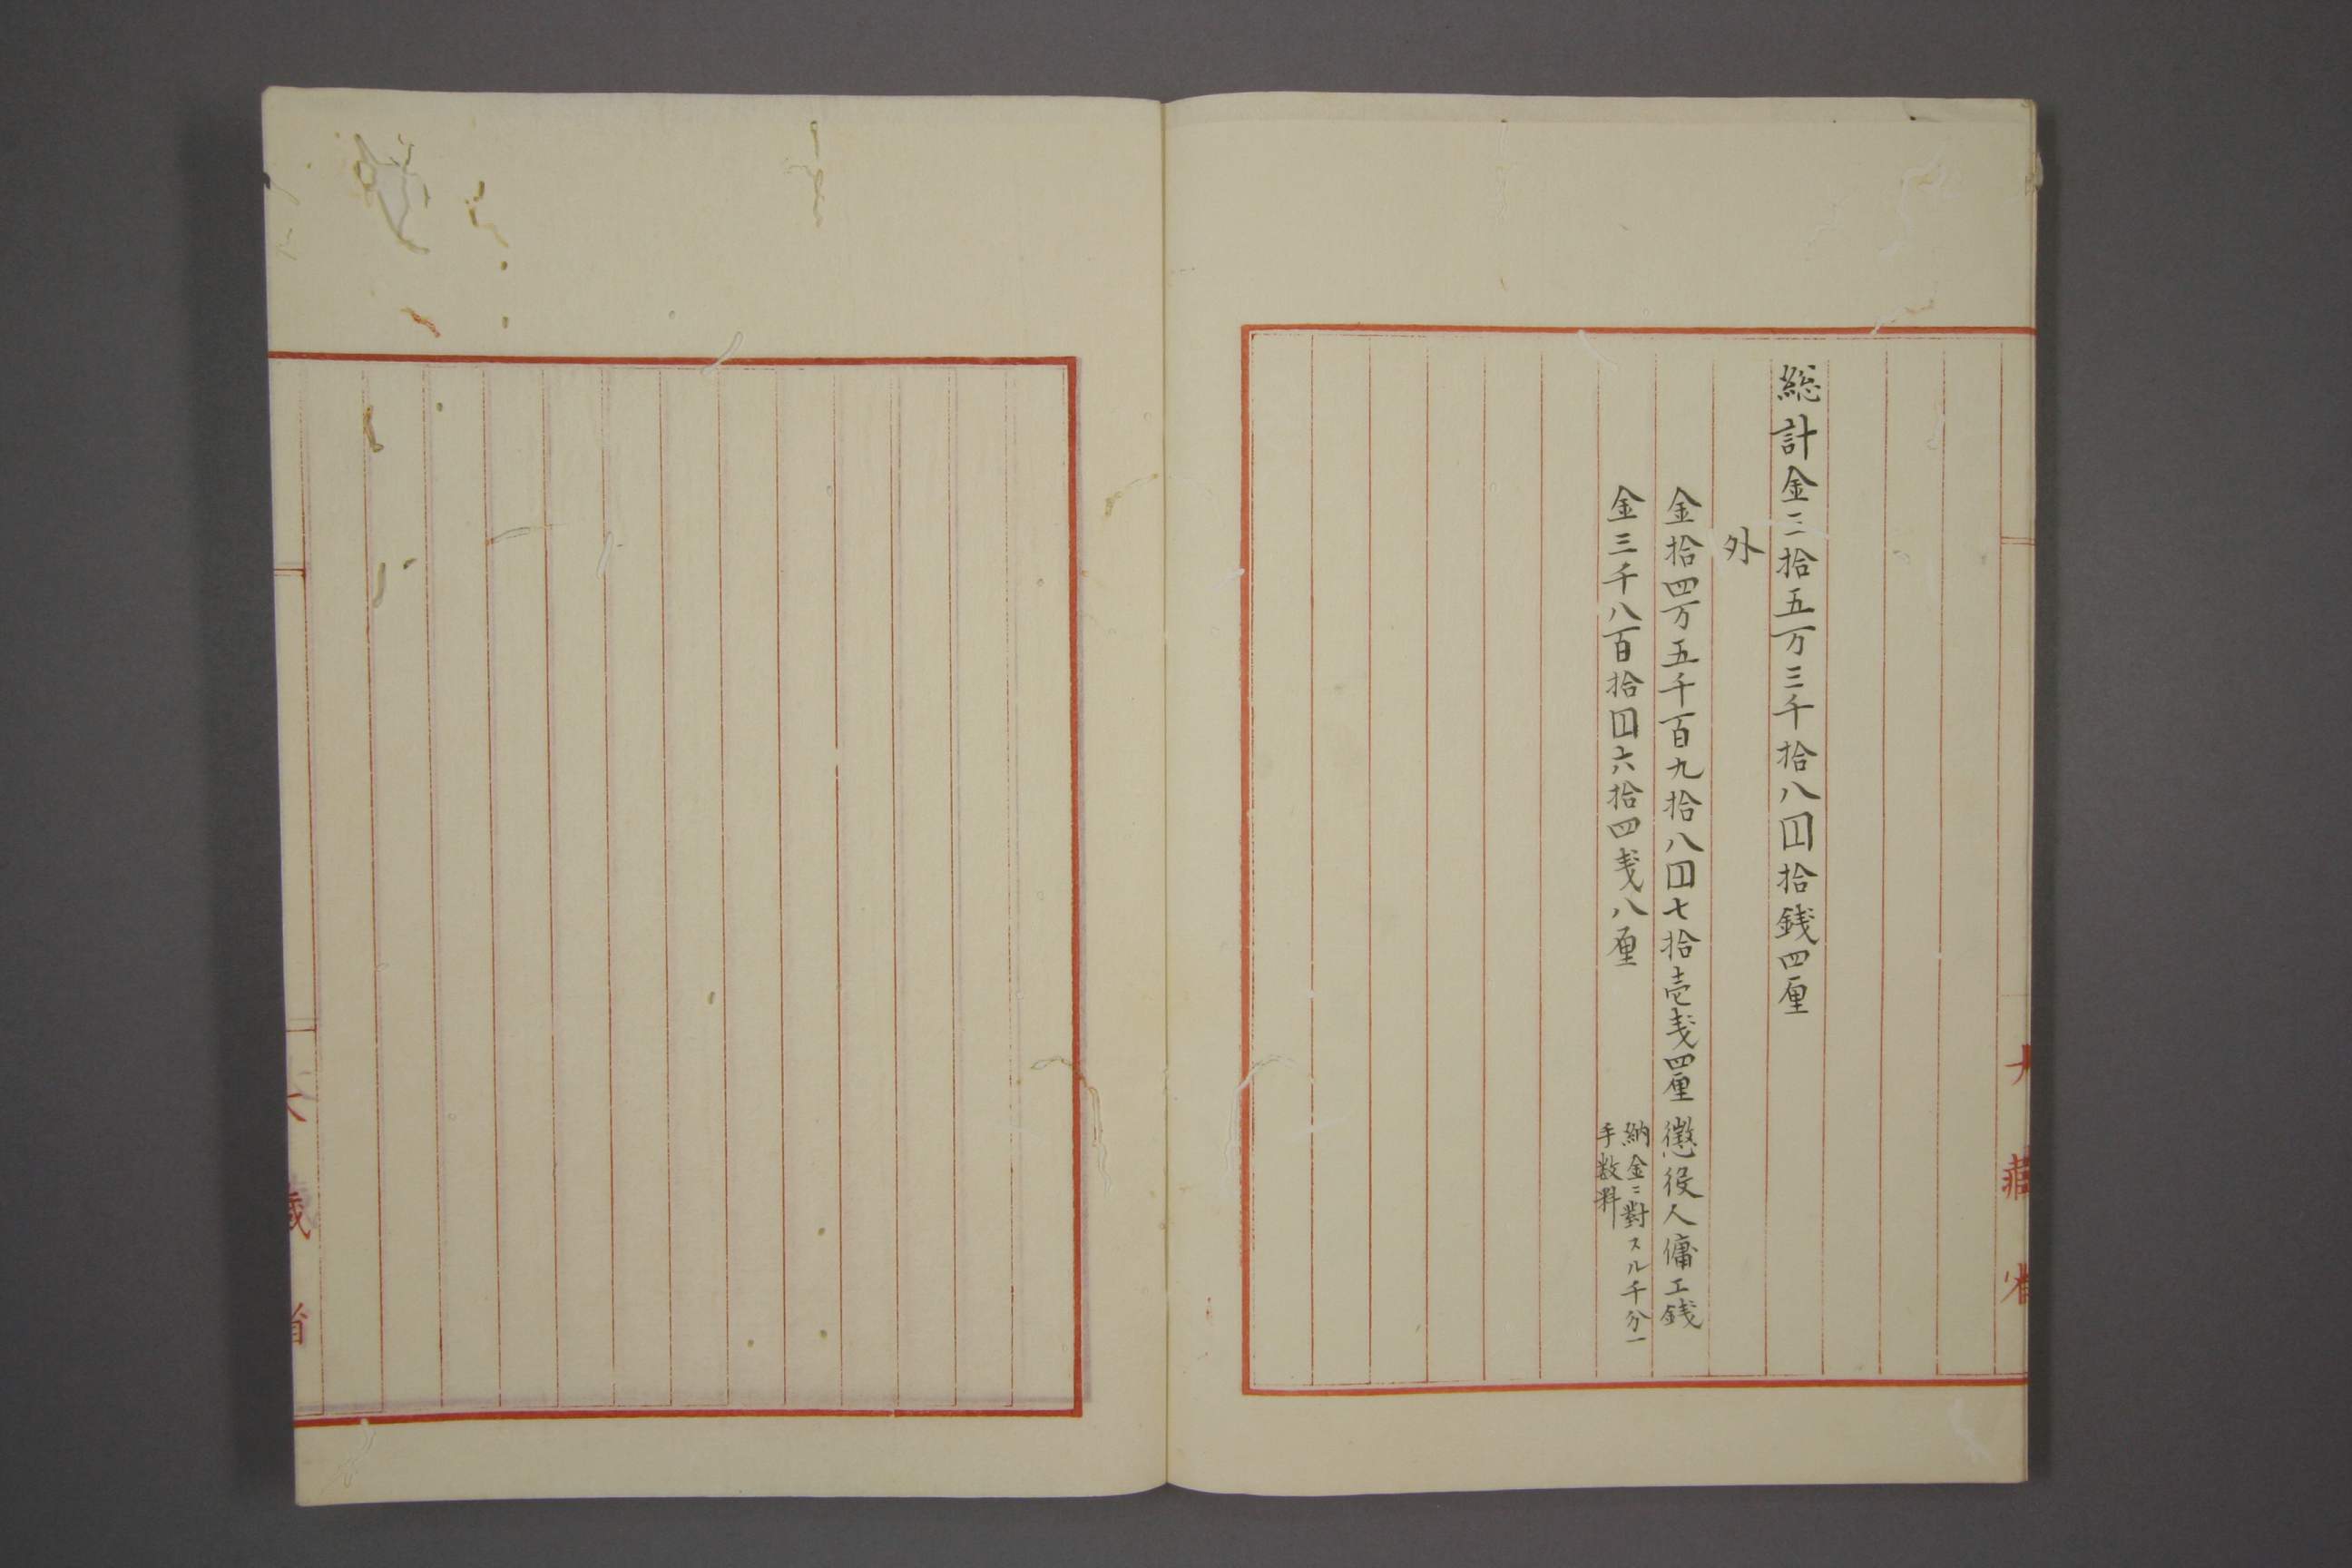 大藏省
総計金三拾五万三千拾八円拾銭四厘
外
金拾四万五千百九拾八円七拾壱戋四厘 懲役人傭工銭
金三千八百拾円六拾四戋八厘 納金ニ對スル千分一
手数料
大藏省